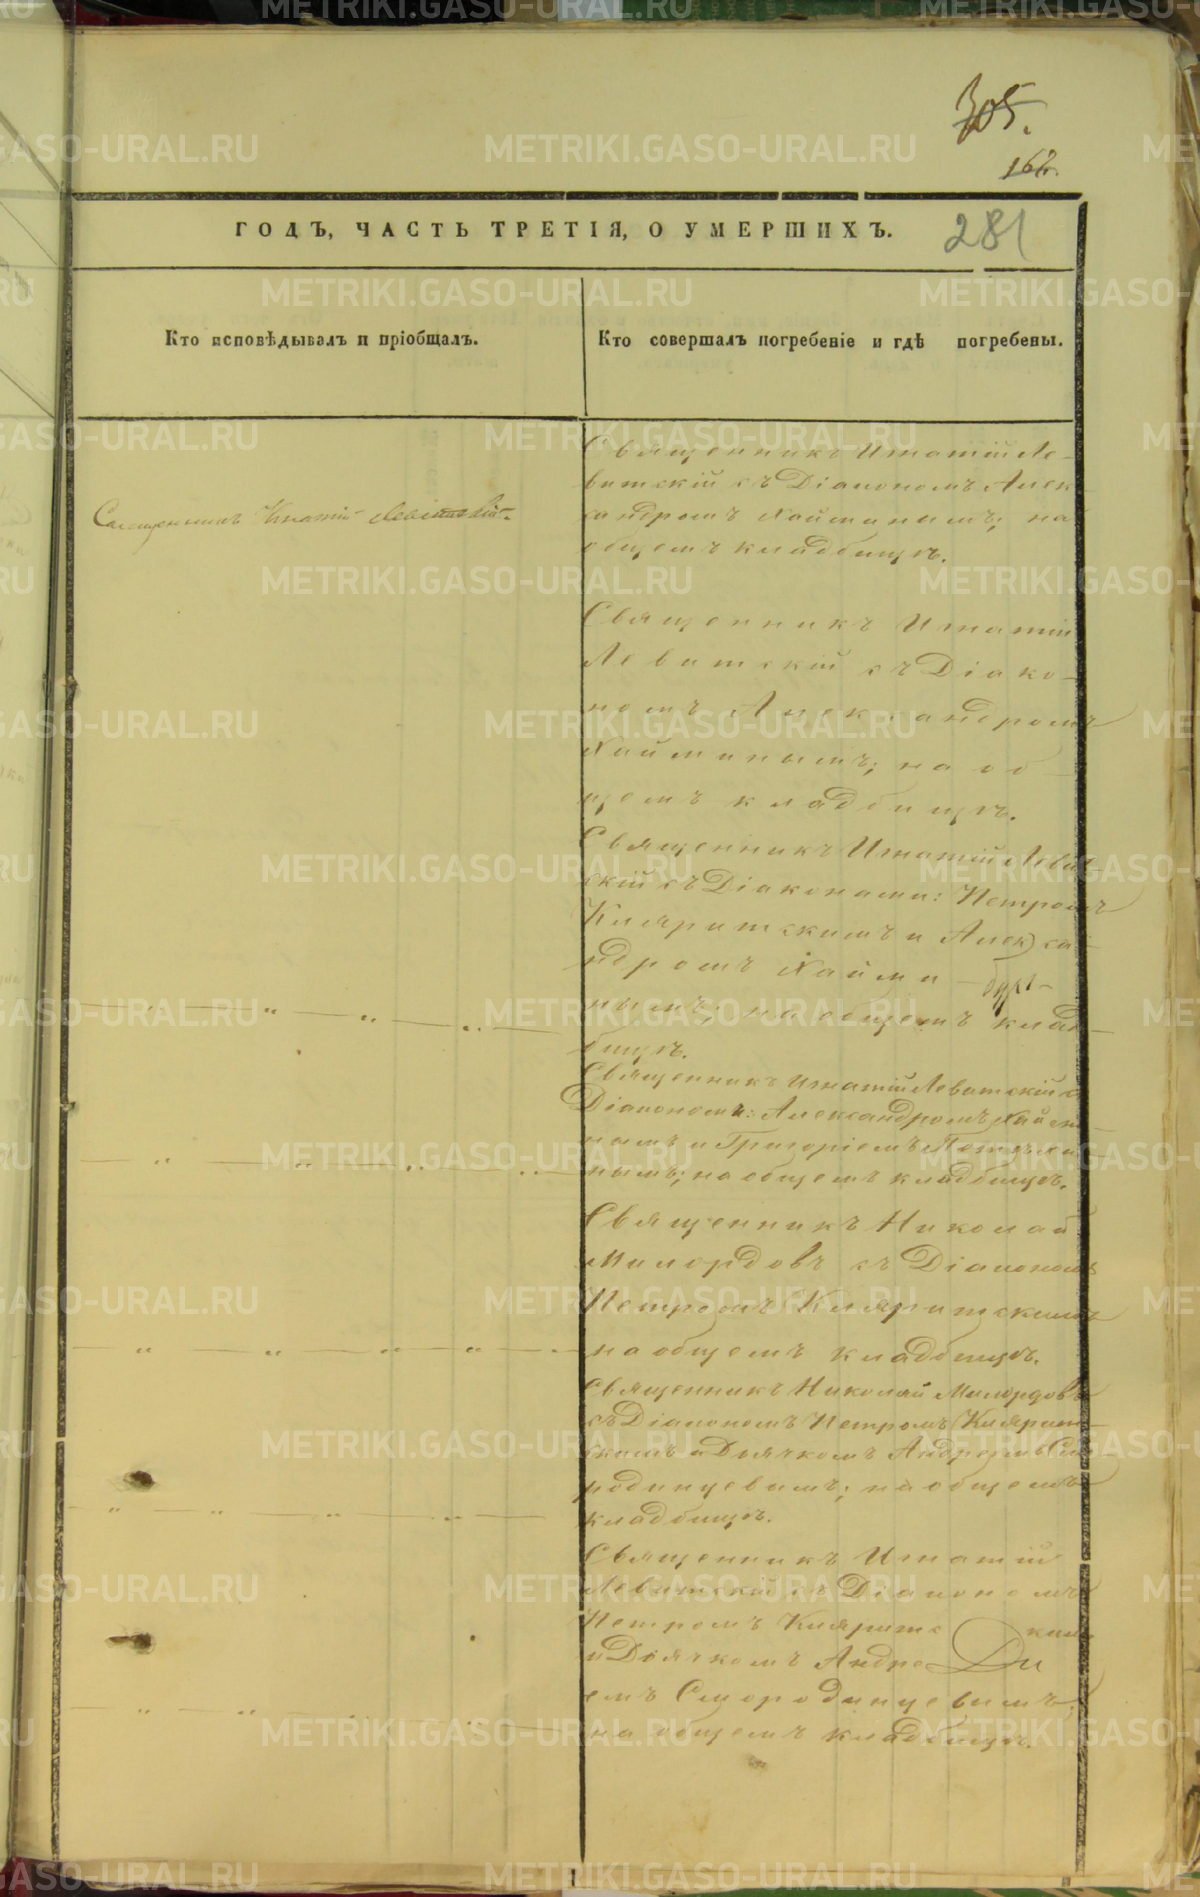 305.
162.
ГОДЪ, ЧАСТЬ ТРЕТІЯ, О УМЕРШИХЪ.
281
Кто исповѣдывалъ и пріобщалъ.
Кто совершалъ погребеніе и гдѣ погребены.
Священникъ Игнатій
Священникъ Игнатій Ле-
витскій съ Діакономъ Алек
сандромъ на
общемъ кладбищѣ.
Священникъ Игнатій
Левитскій съ Діако-
номъ Александромъ
на об-
щемъ кладбищѣ.
Священникъ Игнатій Левит-
скій съ Діаконами: Петромъ
и Алекса-
ндромъ
нымъ; на общемъ клад-
бищѣ.
Священникъ Игнатій Левитскій съ
Діакономъ: Александромъ
нымъ и Григоріемъ
нымъ; на общемъ кладбищѣ.
Священникъ Николай
Милордовъ съ Діакономъ
Петромъ
на общемъ кладбищѣ.
Священникъ Николай Милордовъ
съ Діакономъ Петромъ
скимъ и Дьячкомъ Андреемъ Смо-
родинцевымъ; на общемъ
кладбищѣ.
Священникъ Игнатій
Левитскій съ Діакономъ
Петромъ
и Дьячкомъ Андре-
емъ Смородинцевымъ;
на общемъ кладбищѣ.
METRIKI.GASO-URAL.RU